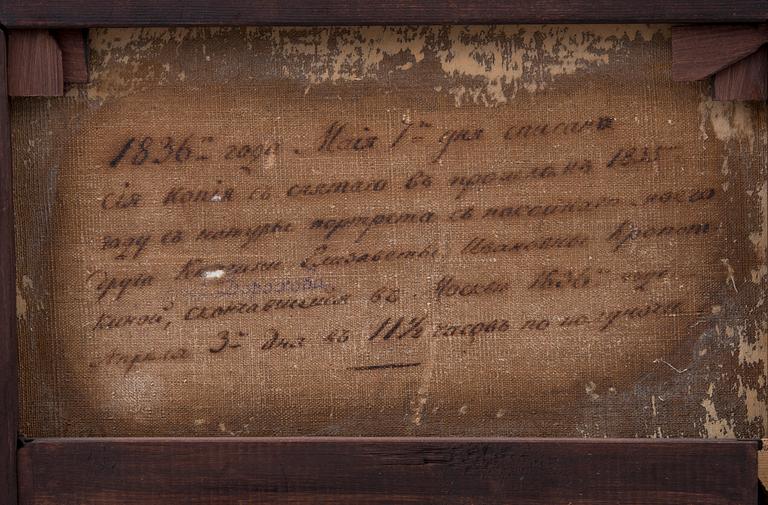 1836го года Маія 1го дня списана
сія копія съ снятаго въ прошломъ 1835
году съ натуры портрета съ покойнаго моего
друга Княгини Елизаветы Ивановны Кропот-
киной, скончавшейся въ Москвѣ 1836го года
Апреля 3го дня въ 11½ часовъ по полуночи